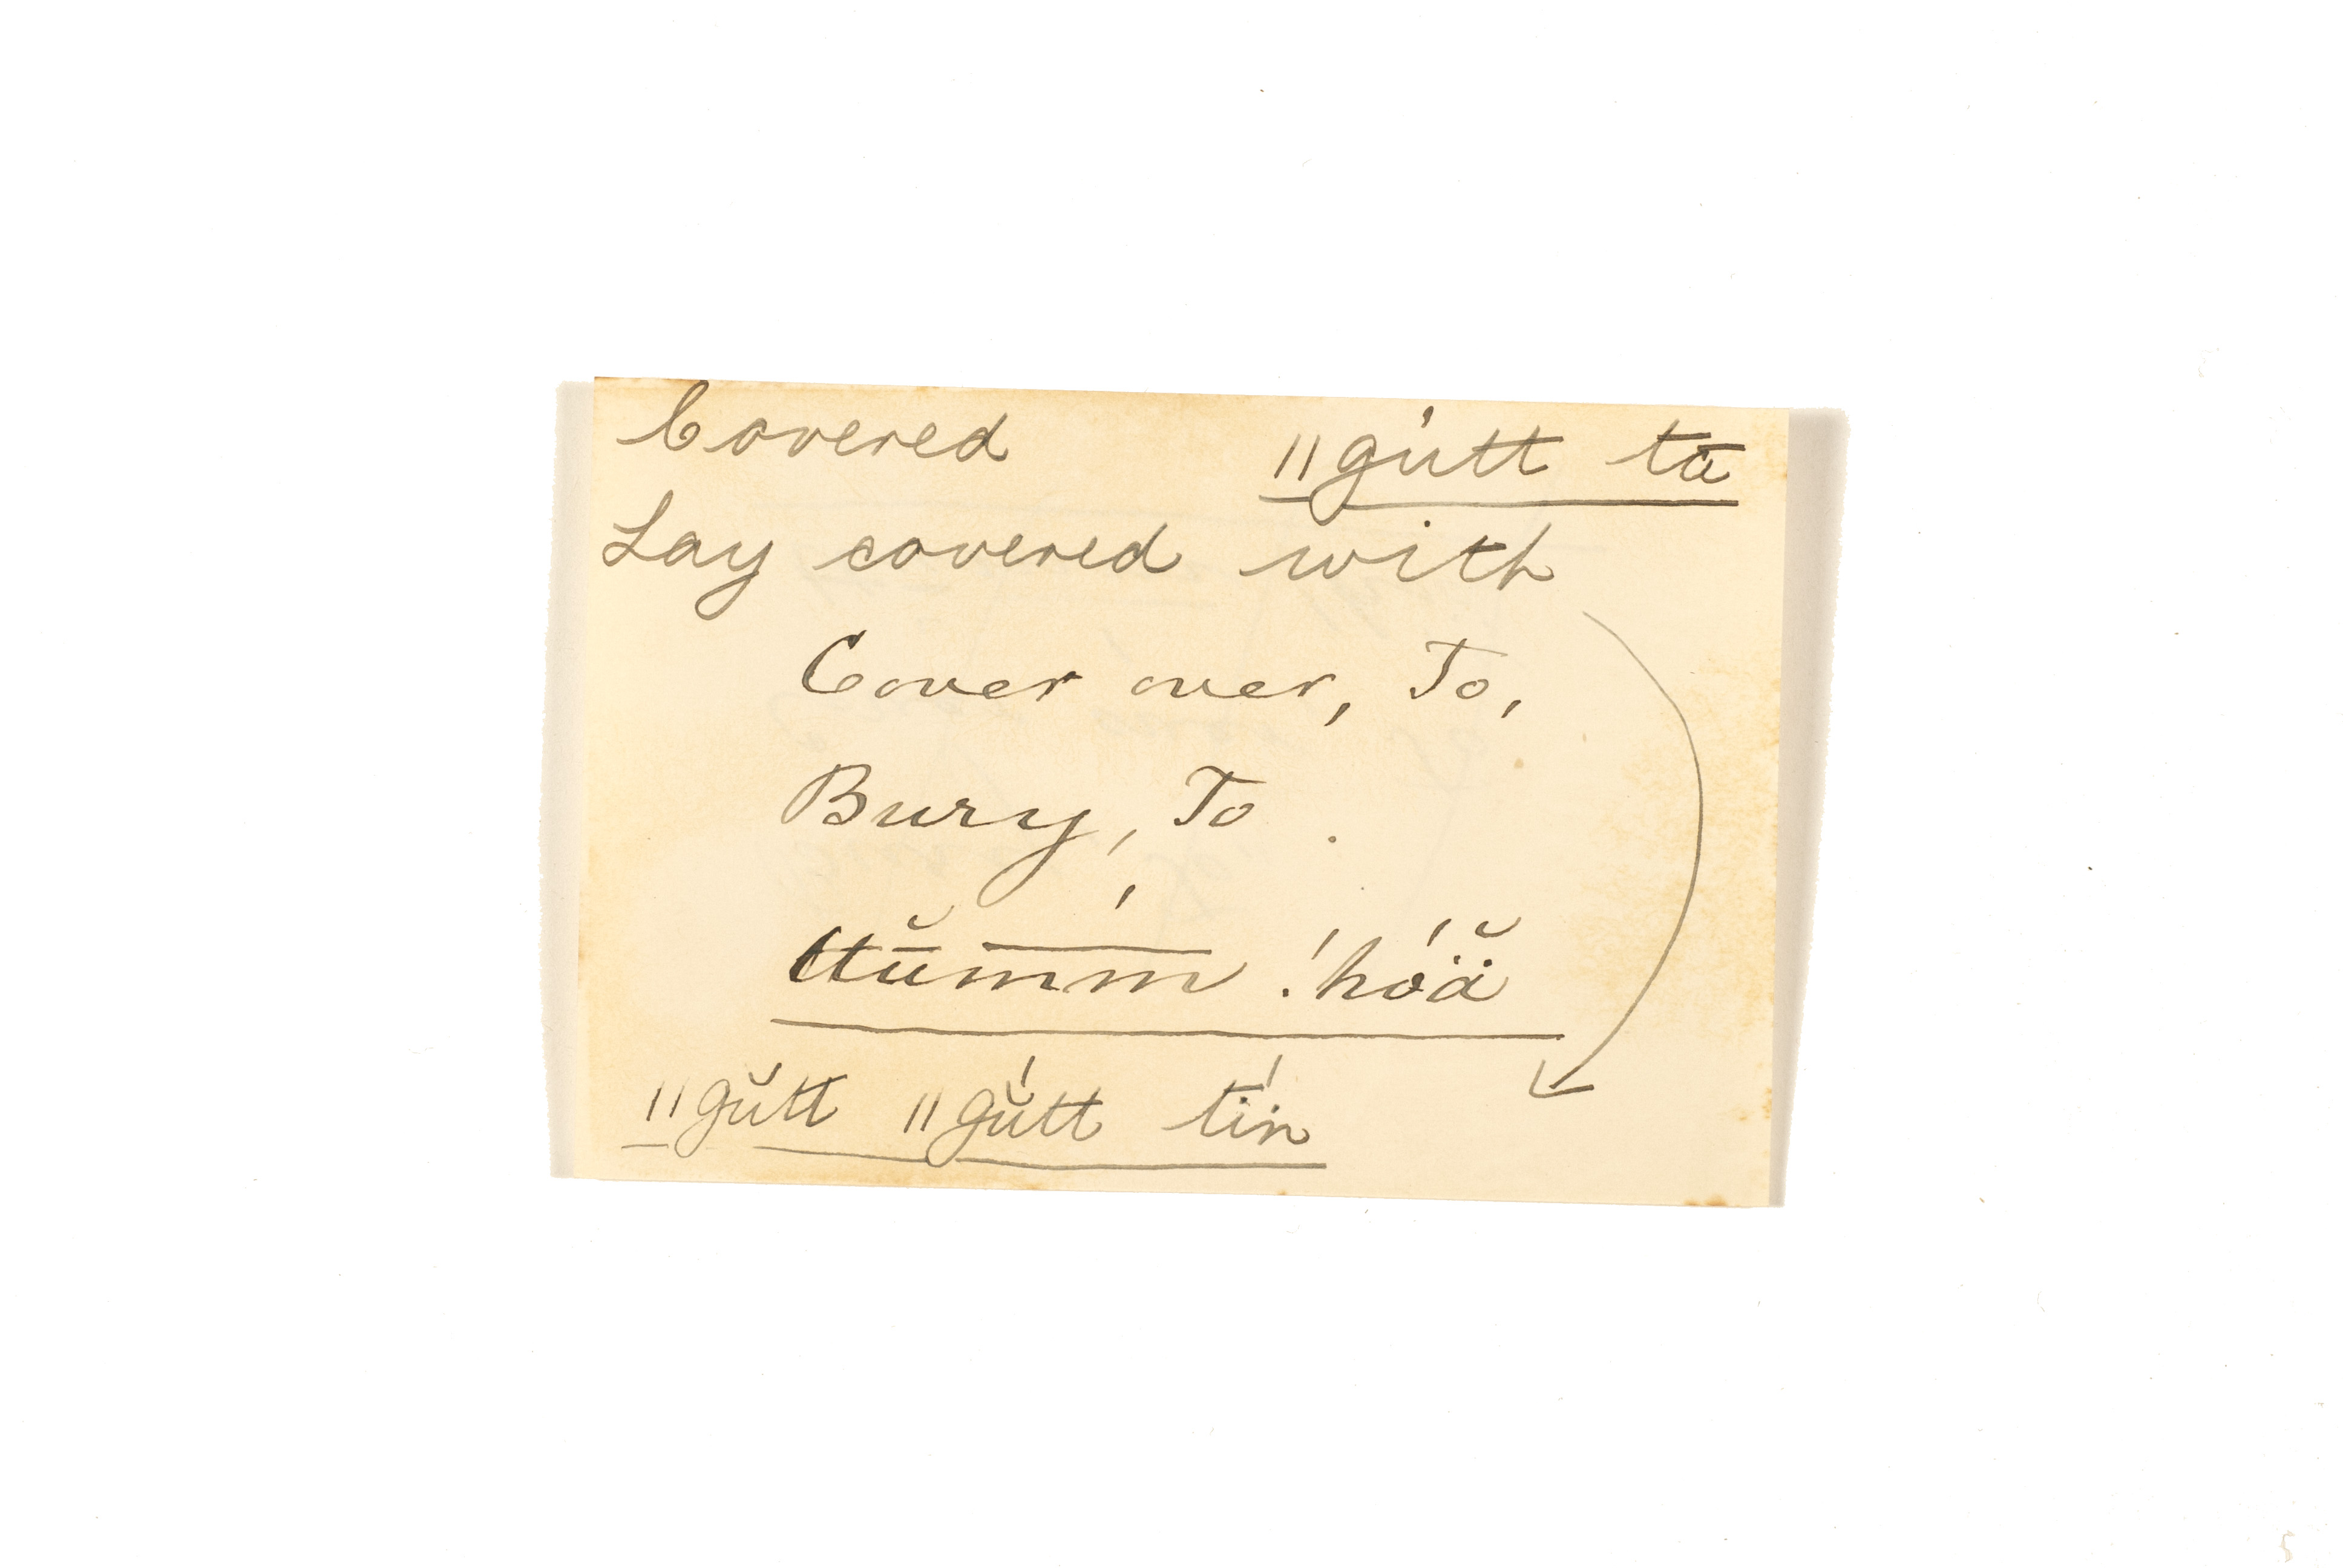 Covered ǁgútt tā
Lay covered with
Cover over, To,
Bury, To.
ttŭmm̄ !hóä̆
ǁgŭtt ǁgŭ́tt tín